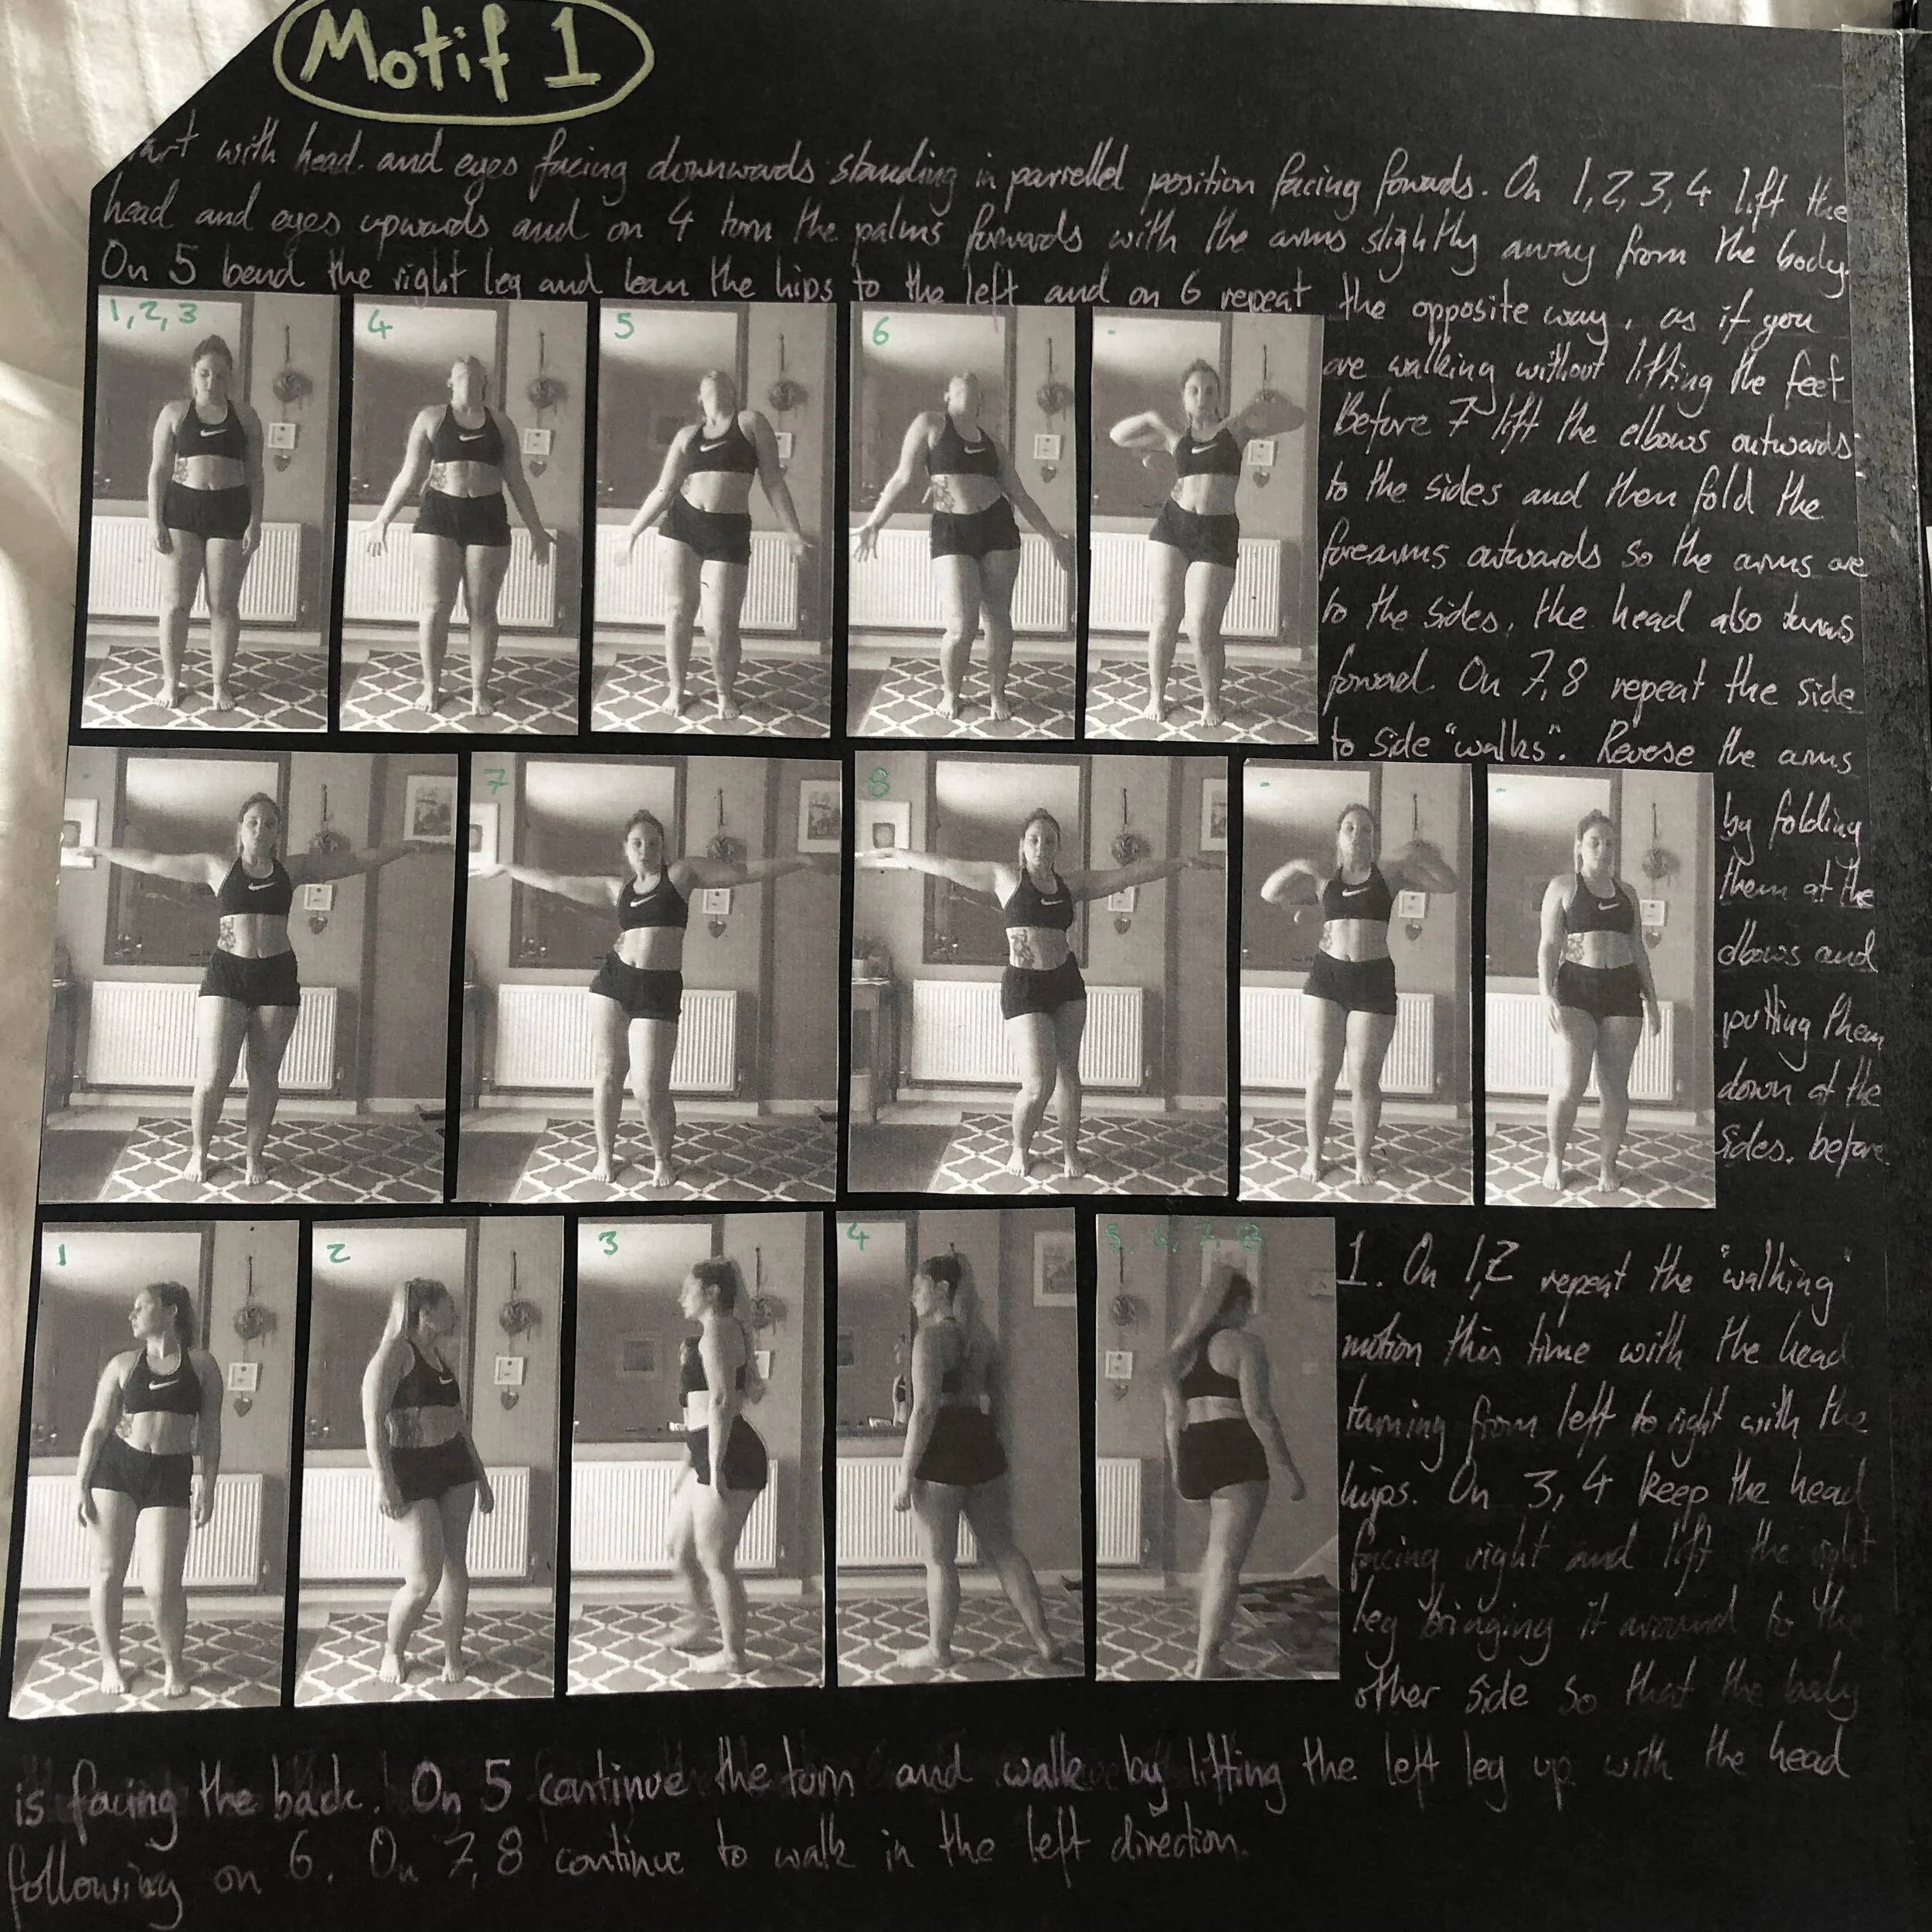 Motif 1
art with head. and eyes facing downwards standing in parrellel position facing fowads. On 1,2,3,4 lift the
head and eyes upwards and on 4 turn the palms forwards with the arms slightly away from the body.
On 5 bend the right leg and lean the hips to the left and on 6 repeat the opposite way, as if you
are walking without lifting the feet
Before 7 lift the elbows outwards
to the sides and then fold the
forearms outwards so the arms are
to the sides, the head also turns
forward. On 7,8 repeat the side
to side "walks". Revese the arms
by folding
them at the
elbows and
putting them
down at the
sides. before
1. On 1,2 repeat the "walking"
motion this time with the head
turning from left to right with the
hips. On 3,4 keep the head
facing right and lift the right
leg bringing it around to the
other side so that the body
is facing the back. On 5 continue the turn and walk by lifting the left leg up with the head
following on 6. On 7,8 continue to walk in the left direction.
1,2,3
4
5
6
-
-
7
8
-
-
1
2
3
4
5, 6, 7, 8